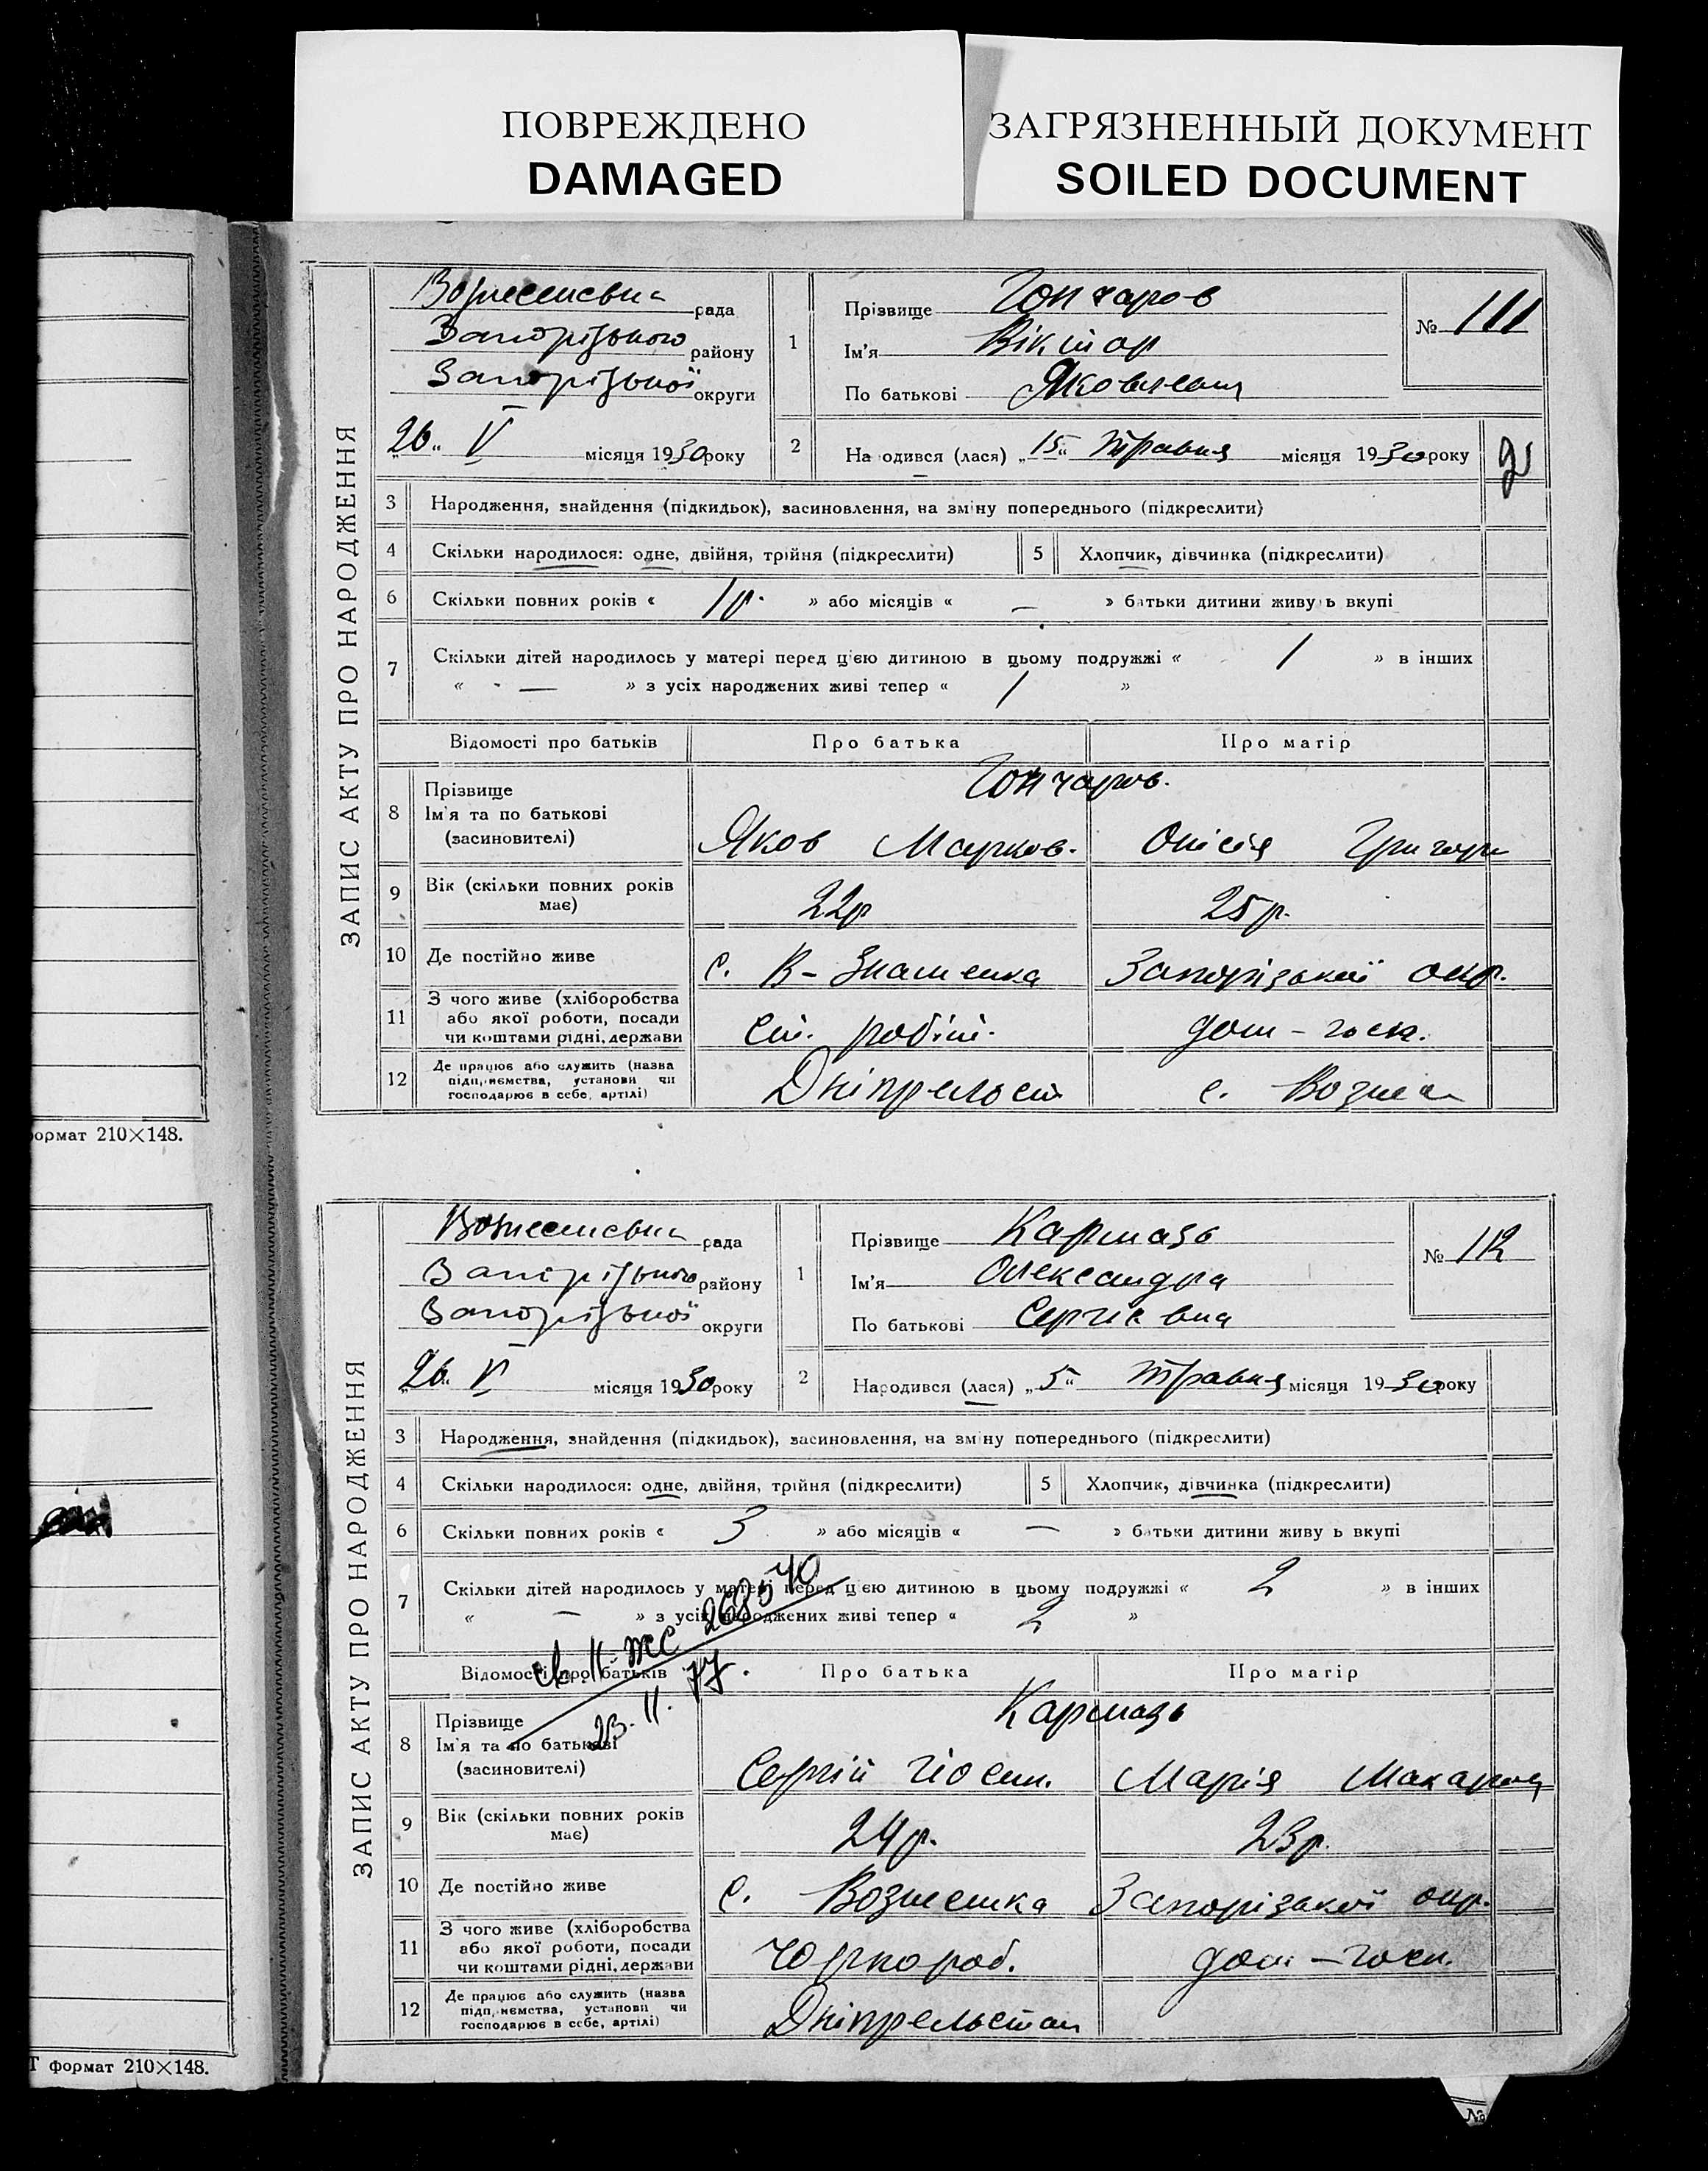 ПОВРЕЖДЕНО
DAMAGED
ЗАГРЯЗНЕННЫЙ ДОКУМЕНТ
SOILED DOCUMENT
ормат 210×148.
Т формат 210×148.
ЗАПИС АКТУ ПРО НАРОДЖЕННЯ
рада
Запорізького району
Запорізької округи
26 V місяця 1930 року
1 Прізвище Гончаров
Ім'я Віктор
По батькові Яковлевич
№ 111
2 На одився (лася) „15“ Травня місяця 1930 року
3 Народження, знайдення (підкидьок), засиновлення, на зміну попереднього (підкреслити)
4 Скільки народилося: одне, двійня, трійня (підкреслити) 5 Хлопчик, дівчинка (підкреслити)
6 Скільки повних років « 1 р. » або місяців « — » батьки дитини живуь вкупі
7 Скільки дітей народилось у матері перед цією дитиною в цьому подружжі « 1 » в інших
« — » з усіх народжених живі тепер « 1 »
Відомості про батьків Про батька Про матір
8 Прізвище Гончаров.
Ім'я та по батькові
(засиновителі) Яков Марков.
9 Вік (скільки повних років
має) 22р 25р.
10 Де постійно живе с. Запорізької окр.
11 З чого живе (хліборобства
або якої роботи, посади
чи коштами рідні, держави ст. робіт. дом-госп.
12 Де працює або служить (назва
підприємства, установи чи
господарює в себе, артілі) Дніпрельст с.
ЗАПИС АКТУ ПРО НАРОДЖЕННЯ
рада
Запорізького району
Запорізької округи
26 V місяця 1930 року
1 Прізвище Кармазь
Ім'я Олександра
По батькові Сергієвна
№ 112
2 Народився (лася) „5“ Травня місяця 1930 року
3 Народження, знайдення (підкидьок), засиновлення, на зміну попереднього (підкреслити)
4 Скільки народилося: одне, двійня, трійня (підкреслити) 5 Хлопчик, дівчинка (підкреслити)
6 Скільки повних років « 3 » або місяців « — » батьки дитини живу ь вкупі
7 Скільки дітей народилось у матері перед цією дитиною в цьому подружжі « 2 » в інших
« — » з усіх народжених живі тепер « 2 »
23.11.77.
Відомості про батьків Про батька Про матір
8 Прізвище Кармазь
Ім'я та по батькові
(засиновителі) Сергій Йосип. Марія
9 Вік (скільки повних років
має) 24р. 23р.
10 Де постійно живе с. Вознесенка Запорізької окр.
11 З чого живе (хліборобства
або якої роботи, посади
чи коштами рідні, держави Чорнороб. дом-госп.
12 Де працює або служить (назва
підприємства, установи чи
господарює в себе, артілі) Дніпрельстан
№